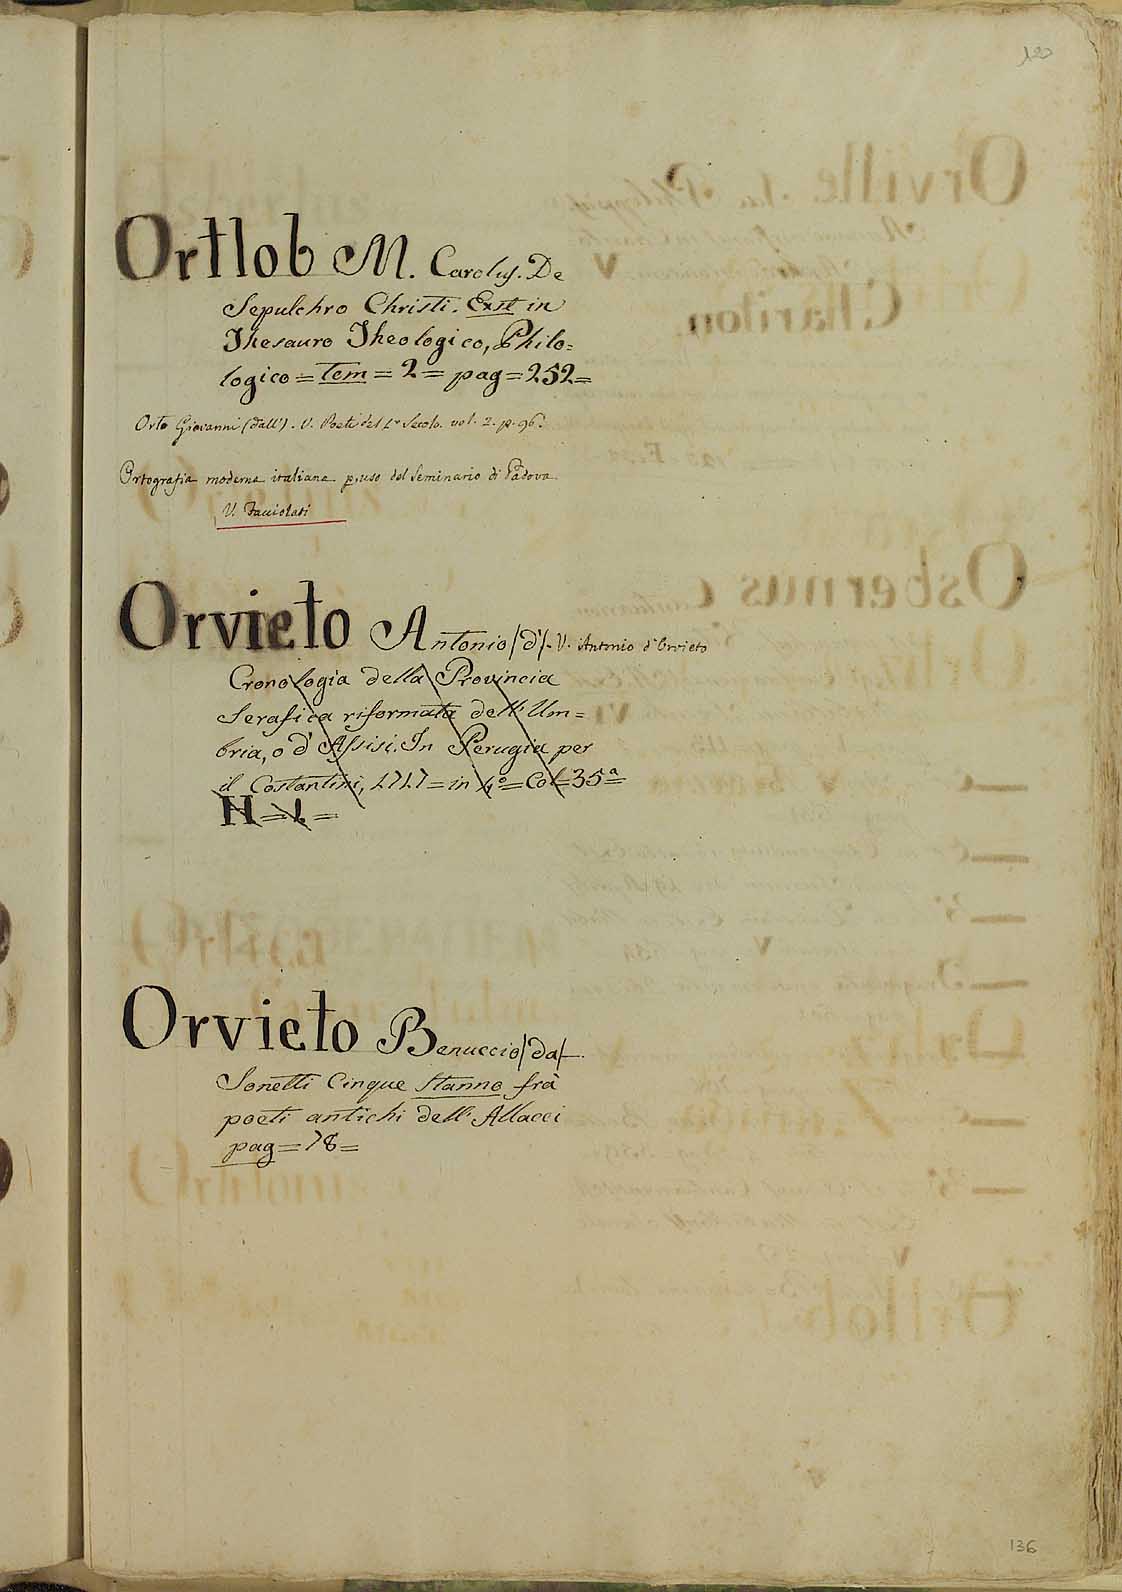 Ortlob M. Carolus. De
Sepulchro Christi. Exst in
Thesauro Theologico, Philo=
logico = Tom = 2 = pag = 252 =
Orto Giovanni (dall'). V. Poeti del 1º Secolo. vol. 2. p. 96.
Ortografia moderna italiana p. uso del Seminario di Padova
V. Facciolati
Orvieto Antonio /d'/. V. Antonio d'Orvieto
Cronologia della Provincia
Serafica riformata dell' Um=
bria, o d' Assisi. In Perugia per
il Costantini, 1717 = in 4º = Col = 35ª =
H = 1. =
Orvieto Benuccio /da/ —.
Sonetti Cinque stanno frà
poeti antichi dell' Allacci
pag = 78 =
136